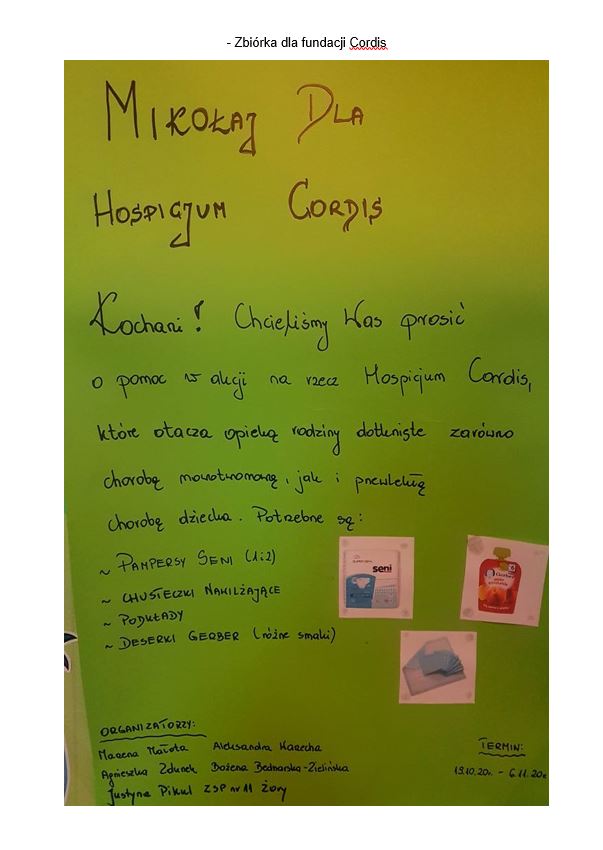 - Zbiórka dla fundacji Cordis
MIKOŁAJ DLA
HOSPICJUM CORDIS
Kochani! Chcieliśmy Was prosić
o pomoc w akcji na rzecz Hospicjum Cordis,
które otacza opieką rodziny dotknięte zarówno
chorobą nowotworową, jak i przewlekłą
chorobą dziecka. Potrzebne są:
~ PAMPERSY SENI (1i2)
~ CHUSTECZKI NAWILŻAJĄCE
~ PODKŁADY
~ DESERKI GERBER (różne smaki)
seni
Gerber
ORGANIZATORZY:
Marzena Małota Aleksandra Karecha
Agnieszka Zdunek Bożena Bednarska-Zielińska
Justyna Pikul ZSP nr 11 Żory
TERMIN:
19.10.20r. - 6.11.20r